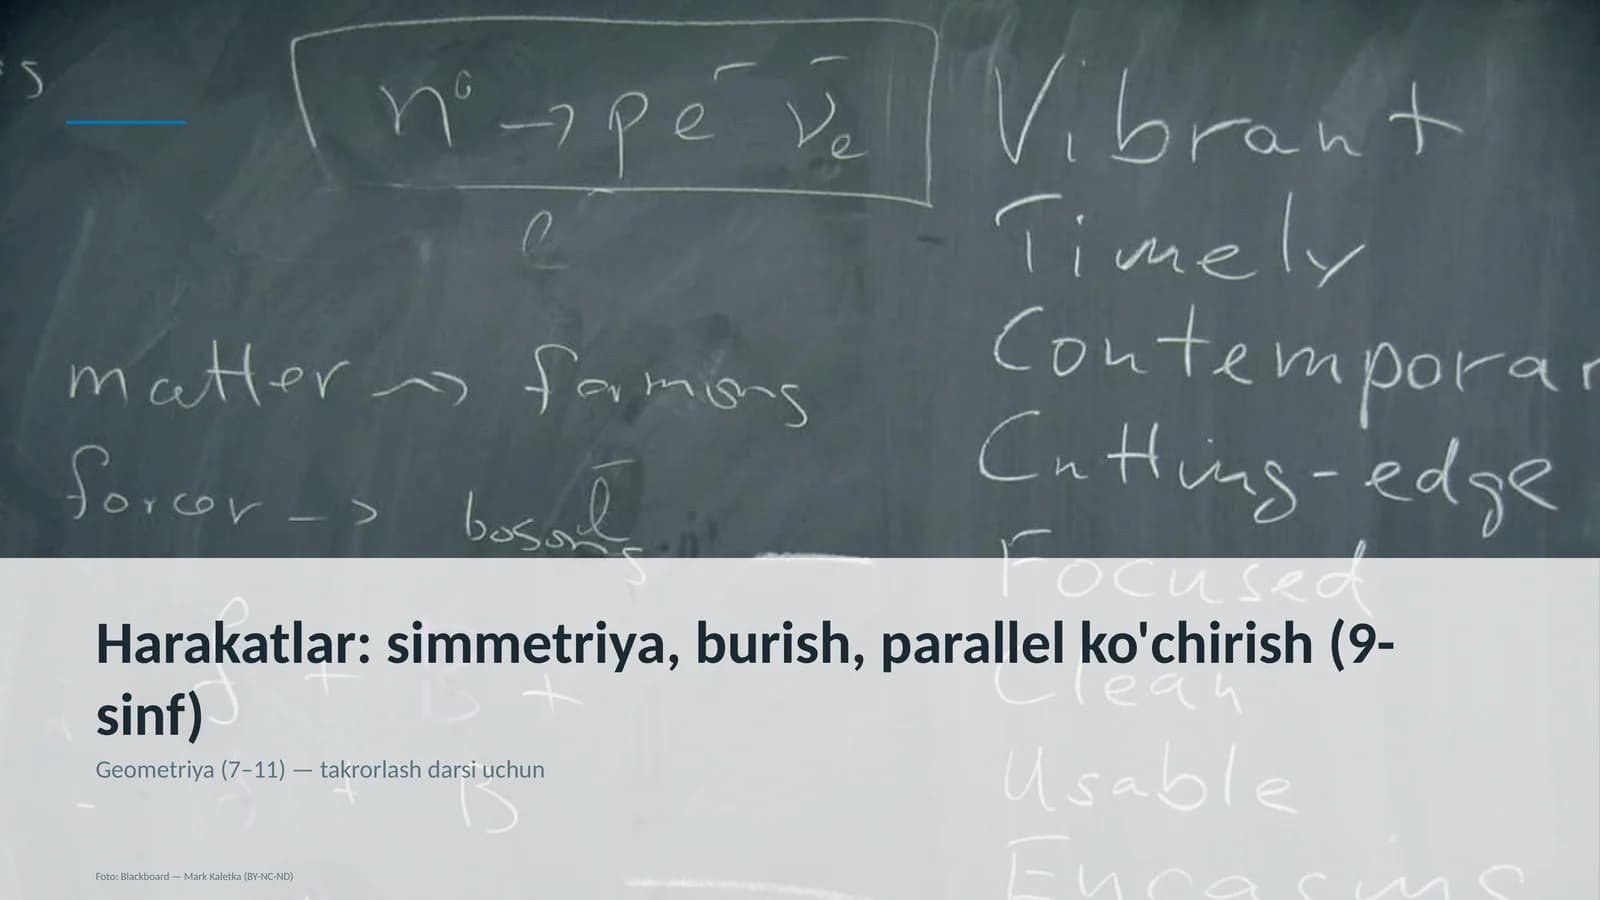 s
n⁰ → p e⁻ ν̄e
Vibrant
Timely
matter → fermions
Contemporar
forces → bosons
Cutting-edge
Focused
Harakatlar: simmetriya, burish, parallel ko'chirish (9-
sinf)
Clean
Geometriya (7–11) — takrorlash darsi uchun
Usable
B
Foto: Blackboard — Mark Kaletka (BY-NC-ND)